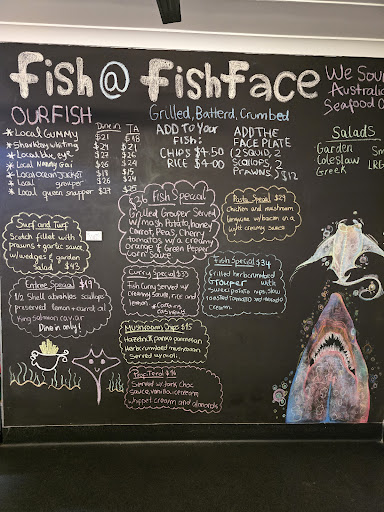 Fish @ fishface
We Sou
Australia
Seafood O
OUR FISH
Dine in TA
* Local Gummy $21 $18
* Shark bay whiting $24 $21
* Local blue eye $27 $26
* Local Nannygai $26 $24
* Local Ocean Jacket $18 $15
* Local grouper $24
* Local queen snapper $29 $25
Grilled, Batterd, Crumbed
ADD TO YOUR
FISH:
CHIPS $4.50
RICE $4.00
ADD THE
FACE PLATE
(2 SQUID, 2
SCALLOPS, 2
PRAWNS) $12
Salads
Garden Sm
Coleslaw
Greek LRG
$36 Fish Special
Grilled Grouper Served
w/ mash Potato, honey
Carrot, Peas, Cherry
tomatoes w/ a creamy
orange & Green Pepper
Corn sauce
Pasta Special $29
Chicken and mushroom
linguine w/ bacon in a
light creamy sauce
Surf and Turf
Scotch fillet with
prawns + garlic sauce
w/ wedges & garden
Salad $43
Entree Special $19
1/2 Shell abrolhos scallops
preserved lemon + carrot, oil
king salmon caviar
Dine in only!
Curry Special $33
Fish curry Served w/
creamy sauce, rice and
lemon
* Contains
cashews
Fish Special $34
Grilled herb crumbed
Grouper with
sweet potato chips, slow
roasted tomato and avocado
cream.
Mushroom Chips $15
Hazelnut, panko parmesan
herb crumbed mushroom
Served w/ aioli.
Served w/ dark choc
sauce, vanilla icecream,
whippet cream and almonds